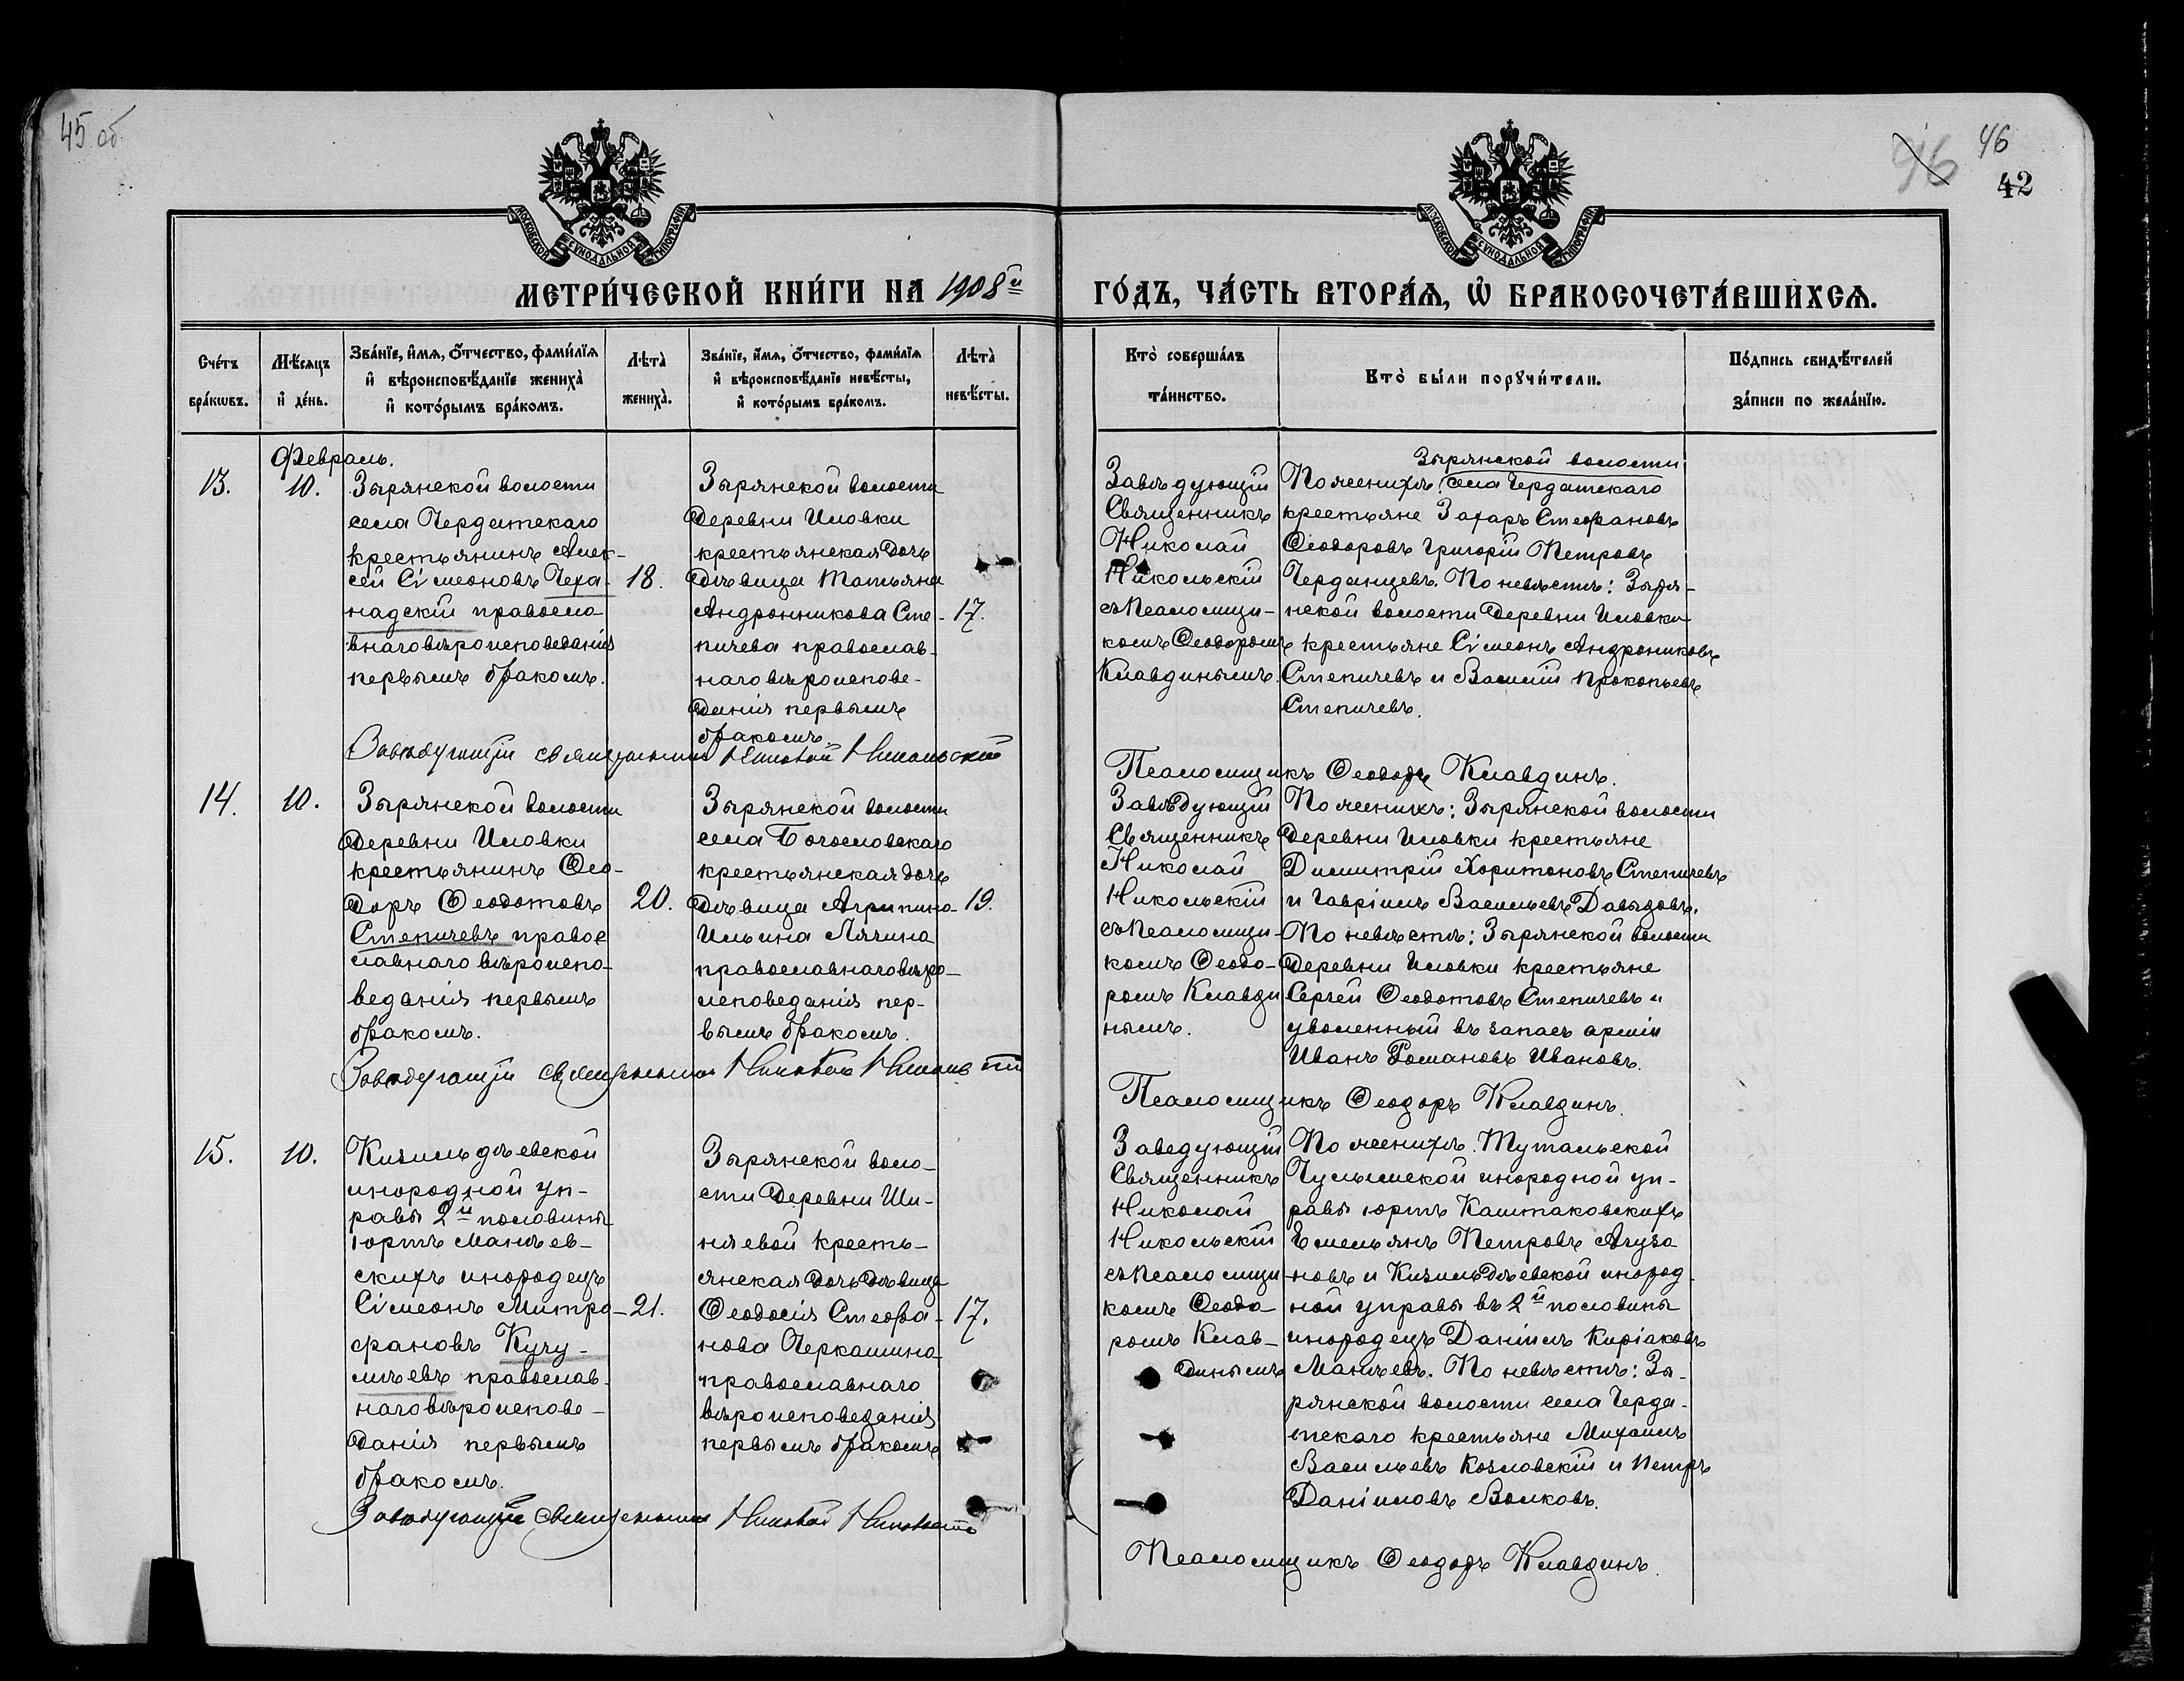 45 об
46
46
42
МОСКОВСКОЙ СѴНОДАЛЬНОЙ ТИПОГРАФІИ
МОСКОВСКОЙ СѴНОДАЛЬНОЙ ТИПОГРАФІИ
МЕТРИ́ЧЕСКОЙ КНИ́ГИ НА 1908й
ГО́ДЪ, ЧА́СТЬ ВТОРА́Ѧ, Ѡ҆ БРАКОСОЧЕТА́ВШИХСѦ.
Сче́тъ
бра́кѡвъ.
Мѣ́сѧцъ
и҆ де́нь.
Зва́нїе, и҆́мѧ, ѻ҆́тчество, фами́лїѧ
и҆ вѣроисповѣ́данїе жениха̀
и҆ кото́рымъ бра́комъ.
Лѣта̀
жениха̀.
Зва́нїе, и҆́мѧ, ѻ҆́тчество, фами́лїѧ
и҆ вѣроисповѣ́данїе невѣ́сты,
и҆ кото́рымъ бра́комъ.
Лѣта̀
невѣ́сты.
Кто̀ соверша́лъ
та́инство.
Кто̀ бы́ли порꙋчи́тели.
По́дпись свидѣ́телей
за́писи по жела́нїю.
Февраль.
13.
10.
Зырянской волости
села Чердатскаго
крестьянинъ Алек-
сей Сімеоновъ Чеха-
надскій правосла
внаго вѣроисповеданія
первымъ бракомъ.
18.
Зырянской волости
деревни Иловки
крестьянская дочь
дѣвица Татьяна
Андронникова Сте-
пичева православ-
наго вѣроиспове-
данія первымъ
бракомъ.
17.
Завѣдующій
Священникъ
Николай
Никольскій
съ Псаломщи-
комъ Ѳеодоромъ
Клавдинымъ.
Зырянской волости
По женихѣ: села Чердатскаго
крестьяне Захаръ Стефановъ
Ѳеодоровъ Григорій Петровъ
Черданцевъ. По невѣстѣ: Зыря-
нской волости деревни Иловки
крестьяне Сімеонъ Андрониковъ
Степичевъ и Василій Прокопьевъ
Степичевъ.
Завѣдующій священникъ Николай Никольскій
Псаломщикъ Ѳеодоръ Клавдинъ.
14.
10.
Зырянской волости
деревни Иловки
крестьянинъ Ѳео-
доръ Ѳеодотовъ
Степичевъ правос
лавнаго вѣроиспо-
веданія первымъ
бракомъ.
20.
Зырянской волости
села Богословскаго
крестьянская дочь
дѣвица Агрипина
Ильина Лячина
православнаго вѣро-
исповеданія пер-
вымъ бракомъ.
19.
Завѣдующій
Священникъ
Николай
Никольскій
съ Псаломщи-
комъ Ѳеодо-
ромъ Клавди
нымъ.
По женихѣ: Зырянской волости
деревни Иловки крестьяне
Димитрій Харитоновъ Степичевъ
и Гавріилъ Васильевъ Давыдовъ.
По невѣстѣ: Зырянской волости
деревни Иловки крестьяне
Сергей Ѳеодотовъ Степичевъ и
уволенный въ запасъ арміи
Иванъ Романовъ Ивановъ.
Завѣдующій священникъ Николай Никольскій
Псаломщикъ Ѳеодоръ Клавдинъ.
15.
10.
Кизильдѣевской
инородной уп-
равы 2й половины
юртъ Манѣев-
скихъ инородецъ
Сімеонъ Митро-
фановъ Кучу-
мѣевъ православ-
наго вѣроиспове-
данія первымъ
бракомъ.
21.
Зырянской воло-
сти деревни Ши-
няевой кресть-
янская дочь дѣвица
Ѳеодосія Стефа-
нова Черкашина
православнаго
вѣроисповеданія
первымъ бракомъ
17.
Заведующій
Священникъ
Николай
Никольскій
съ Псаломщи
комъ Ѳеодо-
ромъ Клав-
динымъ
По женихѣ. Тутальской
Чулымской инородной уп-
равы юртъ Каштаковскихъ
Емельянъ Петровъ Агуза
новъ и Кизильдѣевской инород-
ной управы въ 2й половины
инородецъ Даніилъ Киріаковъ
Манѣевъ. По невѣстѣ: Зы-
рянской волости села Черда-
тскаго крестьяне Михаилъ
Васильевъ Козловскій и Петръ
Даніиловъ Волковъ.
Завѣдующій священникъ Николай Никольскій
Псаломщикъ Ѳеодоръ Клавдинъ.